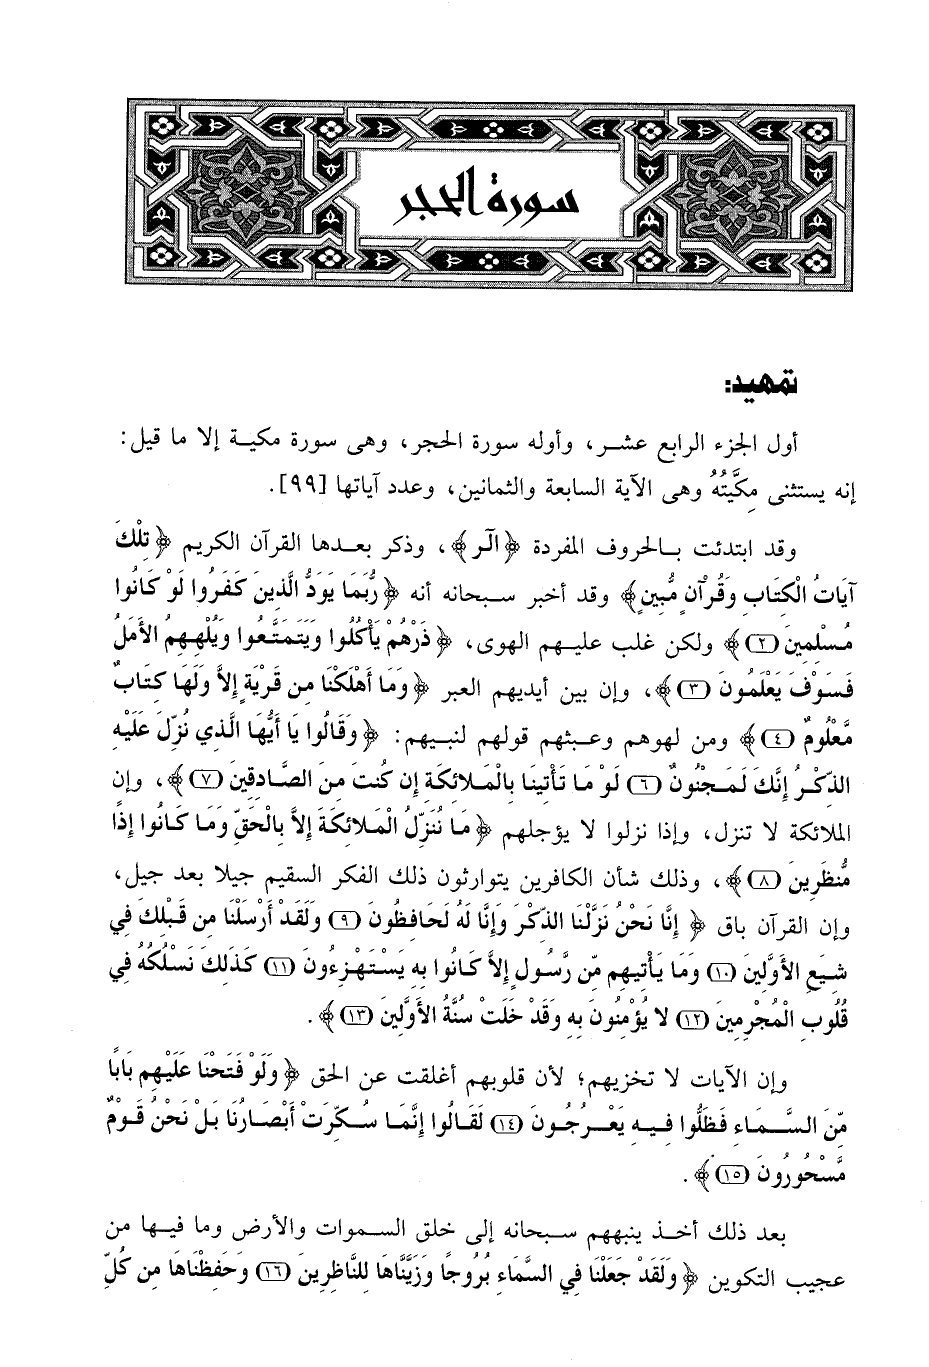 سورة الحجر
تمهيد:
أول الجزء الرابع عشر، وأوله سورة الحجر، وهى سورة مكية إلا ما قيل:
إنه يستثنى مِكِّيَّتُهُ وهى الآية السابعة والثمانين، وعدد آياتها [٩٩].
وقد ابتدئت بالحروف المفردة ﴿الٓر﴾، وذكر بعدها القرآن الكريم ﴿تِلْكَ
آيَاتُ الْكِتَابِ وَقُرْآنٍ مُّبِينٍ﴾ وقد أخبر سبحانه أنه ﴿رُّبَمَا يَوَدُّ الَّذِينَ كَفَرُوا لَوْ كَانُوا
مُسْلِمِينَ (٢)﴾ ولكن غلب عليهم الهوى، ﴿ذَرْهُمْ يَأْكُلُوا وَيَتَمَتَّعُوا وَيُلْهِهِمُ الأَمَلُ
فَسَوْفَ يَعْلَمُونَ (٣)﴾، وإن بين أيديهم العبر ﴿وَمَا أَهْلَكْنَا مِن قَرْيَةٍ إِلاَّ وَلَهَا كِتَابٌ
مَّعْلُومٌ (٤)﴾ ومن لهوهم وعبثهم قولهم لنبيهم: ﴿وَقَالُوا يَا أَيُّهَا الَّذِي نُزِّلَ عَلَيْهِ
الذِّكْرُ إِنَّكَ لَمَجْنُونٌ (٦) لَوْ مَا تَأْتِينَا بِالْمَلائِكَةِ إِن كُنتَ مِنَ الصَّادِقِينَ (٧)﴾، وإن
الملائكة لا تنزل، وإذا نزلوا لا يؤجلهم ﴿مَا نُنَزِّلُ الْمَلائِكَةَ إِلاَّ بِالْحَقِّ وَمَا كَانُوا إِذًا
مُّنظَرِينَ (٨)﴾، وذلك شأن الكافرين يتوارثون ذلك الفكر السقيم جيلا بعد جيل،
وإن القرآن باق ﴿إِنَّا نَحْنُ نَزَّلْنَا الذِّكْرَ وَإِنَّا لَهُ لَحَافِظُونَ (٩) وَلَقَدْ أَرْسَلْنَا مِن قَبْلِكَ فِي
شِيَعِ الأَوَّلِينَ (١٠) وَمَا يَأْتِيهِم مِّن رَّسُولٍ إِلاَّ كَانُوا بِهِ يَسْتَهْزِءُونَ (١١) كَذَلِكَ نَسْلُكُهُ فِي
قُلُوبِ الْمُجْرِمِينَ (١٢) لا يُؤْمِنُونَ بِهِ وَقَدْ خَلَتْ سُنَّةُ الأَوَّلِينَ (١٣)﴾.
وإن الآيات لا تخزيهم؛ لأن قلوبهم أغلقت عن الحق ﴿وَلَوْ فَتَحْنَا عَلَيْهِم بَابًا
مِّنَ السَّمَاءِ فَظَلُّوا فِيهِ يَعْرُجُونَ (١٤) لَقَالُوا إِنَّمَا سُكِّرَتْ أَبْصَارُنَا بَلْ نَحْنُ قَوْمٌ
مَّسْحُورُونَ (١٥)﴾.
بعد ذلك أخذ ينبههم سبحانه إلى خلق السموات والأرض وما فيها من
عجيب التكوين ﴿وَلَقَدْ جَعَلْنَا فِي السَّمَاءِ بُرُوجًا وَزَيَّنَّاهَا لِلنَّاظِرِينَ (١٦) وَحَفِظْنَاهَا مِن كُلِّ